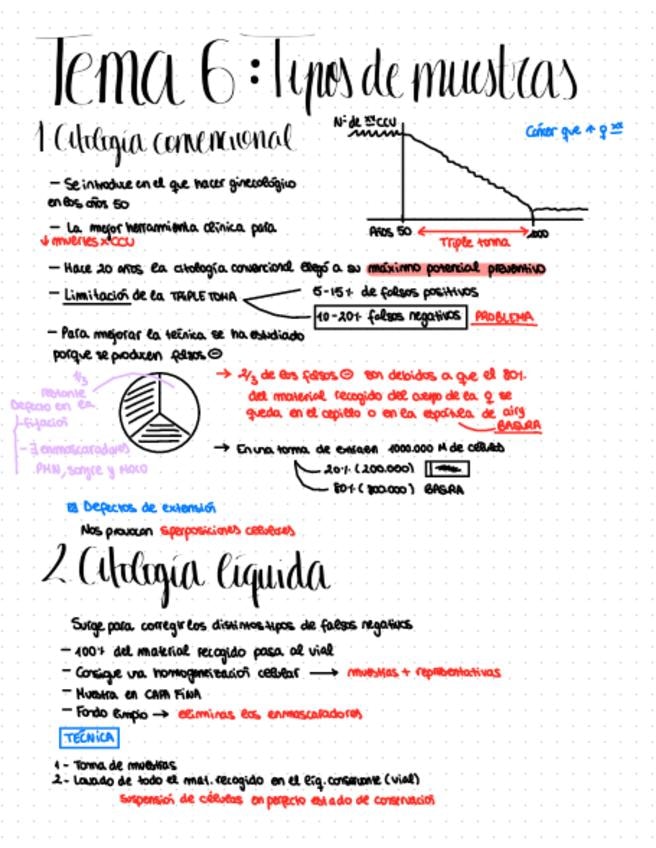 Tema 6: Tipos de muestras
1 Citología convencional
Nº de CCU
Cáncer que ↑ ♀
- Se introduce en el que hacer ginecológico
en los años 50
- La mejor herramienta clínica para
↓ muertes x CCU
Años 50
Triple toma
2000
- Hace 20 años la citología convencional llegó a su máximo potencial preventivo
- Limitación de la TRIPLE TOMA
5-15% de falsos positivos
10-20% falsos negativos PROBLEMA
- Para mejorar la técnica se ha estudiado
porque se producen falsos ⊖
1/3
restante
Defecto en la
fijación
- ∃ enmascaradores
PMN, sangre y moco
→ 2/3 de los falsos ⊖ son debidos a que el 80%
del material recogido del cuello de la ♀ se
queda en el cepillo o en la espátula de
BASURA
→ En una toma de extraen 1000.000 M de células
20% (200.000)
80% (800.000) BASURA
Defectos de extensión
Nos provocan superposiciones celulares
2 Citología líquida
Surge para corregir los distintos tipos de falsos negativos
- 100% del material recogido pasa al vial
- Consigue una homogeneización celular → muestras + representativas
- Muestra en CAPA FINA
- Fondo limpio → eliminas los enmascaradores
TÉCNICA
1 - Toma de muestras
2 - Lavado de todo el mat. recogido en el líq. conservante (vial)
Suspensión de células en perfecto estado de conservación